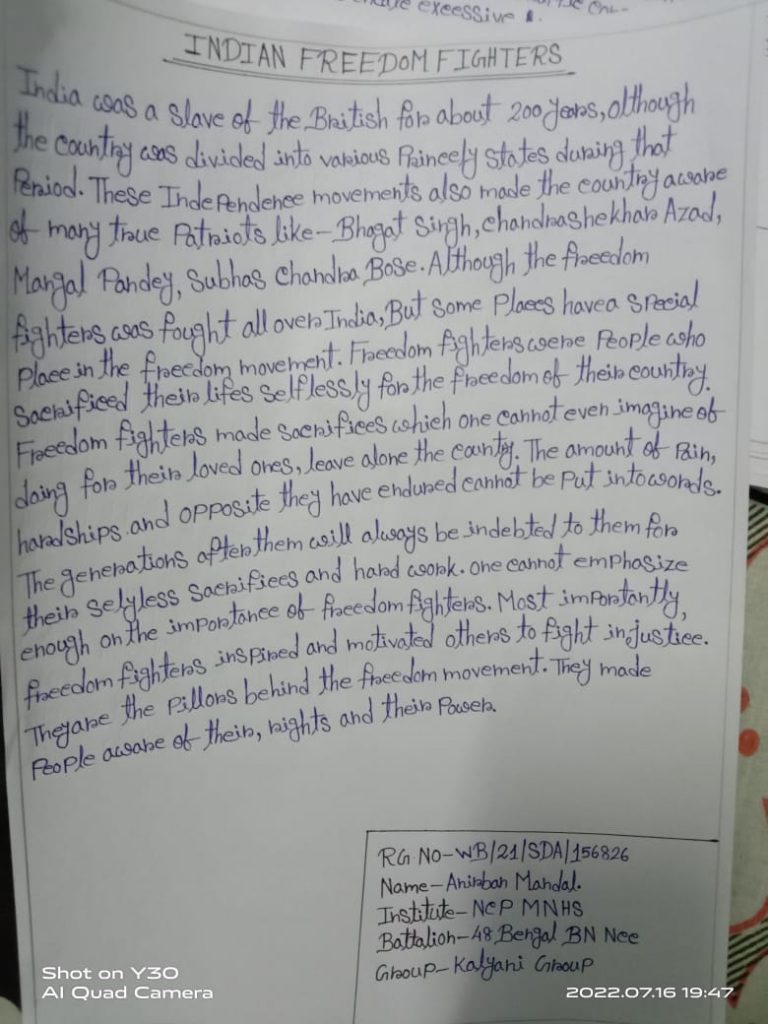 excessive
INDIAN FREEDOM FIGHTERS
India was a slave of the British for about 200 years, although
the country was divided into various Princely States during that
Period. These Independence movements also made the country aware
of many true Patriots like - Bhagat Singh, chandrashekhar Azad,
Mangal Pandey, Subhas Chandra Bose. Although the freedom
fighters was fought all over India, But some Places have a special
Place in the freedom movement. Freedom fighters were People who
Sacrificed their lifes selflessly for the freedom of their country.
Freedom fighters made sacrifices which one cannot even imagine of
doing for their loved ones, leave alone the county. The amount of Pain,
hardships and opposite they have endured cannot be Put into words.
The generations after them will always be indebted to them for
their selyless sacrifices and hard work. one cannot emphasize
enough on the importance of freedom fighters. Most importantly,
freedom fighters inspired and motivated others to fight injustice.
They are the Pillors behind the freedom movement. They made
People aware of their, rights and their Power.
RG NO - WB/21/SDA/156826
Name - Anirban Mandal.
Institute - NCP MNHS
Battalion - 48 Bengal BN Ncc
Group - Kalyani Group
Shot on Y30
AI Quad Camera
2022.07.16 19:47